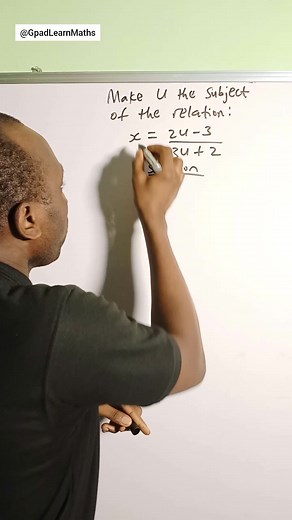 @GpadLearnMaths
Make U the subject
of the relation:
x = 2u - 3
3u + 2